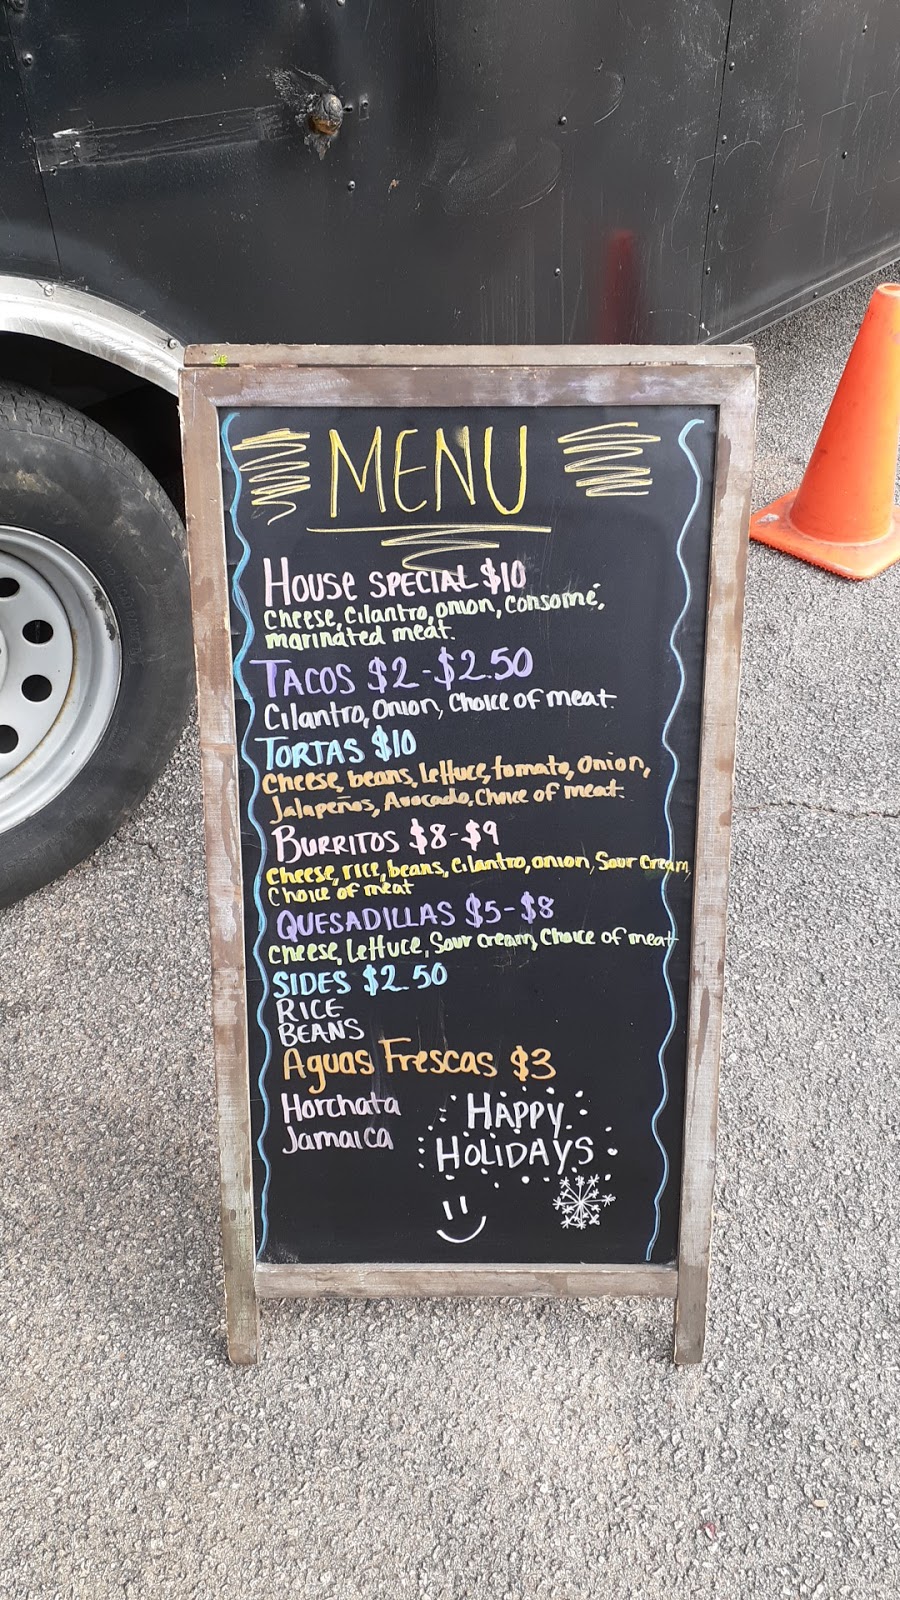 MENU
HOUSE SPECIAL $10
Cheese, Cilantro, onion, Consomé,
marinated meat.
TACOS $2-$2.50
Cilantro, Onion, Choice of meat.
TORTAS $10
Cheese, beans, Lettuce, tomato, Onion,
Jalapeños, Avocado, Choice of meat.
BURRITOS $8-$9
Cheese, rice, beans, Cilantro, onion, Sour Cream,
Choice of meat
QUESADILLAS $5-$8
Cheese, Lettuce, Sour Cream, Choice of meat
SIDES $2.50
RICE
BEANS
Aguas Frescas $3
Horchata
Jamaica
HAPPY
HOLIDAYS